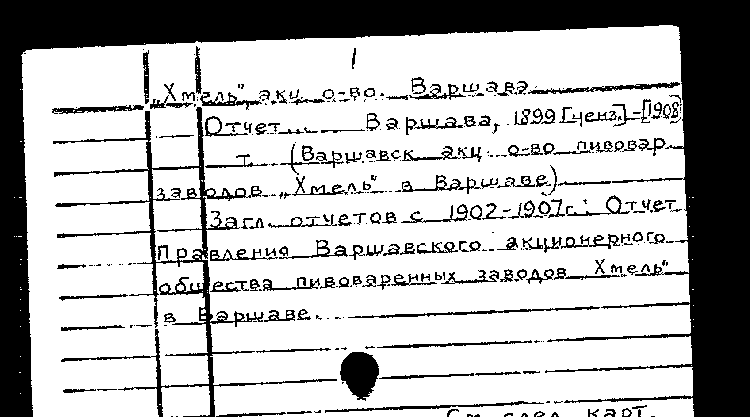 1
„Хмель", акц. о-во. Варшава
Отчет... Варшава, 1899 [ценз.]-[1908]
т. (Варшавск. акц. о-во пивовар.
заводов „Хмель" в Варшаве)
Загл. отчетов с 1902-1907г.: Отчет
Правления Варшавского акционерного
общества пивоваренных заводов Хмель"
в Варшаве.
См. след. карт.